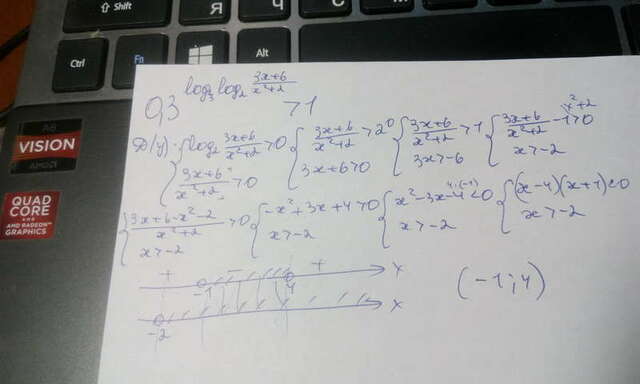 Shift
Я Ч С
Ctrl Fn Alt
A8
VISION
AMD
QUAD CORE
AMD RADEON™
GRAPHICS
0,3^{log₃ log₂ (3x+6)/(x²+2)} > 1
D(y): { log₂ (3x+6)/(x²+2) > 0 { (3x+6)/(x²+2) > 2⁰ { (3x+6)/(x²+2) > 1 { (3x+6)/(x²+2) - 1 > 0 x²+2
(3x+6)/(x²+2) > 0 3x+6>0 3x>-6 x>-2
{ (3x+6-x²-2)/(x²+2) > 0 { -x²+3x+4>0 { x²-3x-4<0 4·(-1) { (x-4)(x+1)<0
x>-2 x>-2 x>-2 x>-2
+ - + x
-1 4
x
-2
(-1;4)